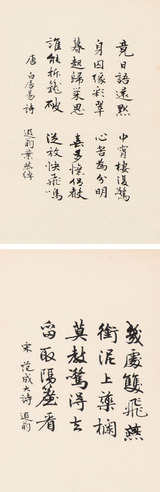 竟日語還默 中宵棲復驚
身囚緣彩翠 心苦為分明
暮起歸巢思 春多憶侶聲
誰能拆籠破 從放快飛鳴
唐 白居易詩 遐翁葉恭綽
幾處雙飛燕
銜泥上藥欄
莫教驚得去
留取隔簾看
宋 范成大詩 遐翁